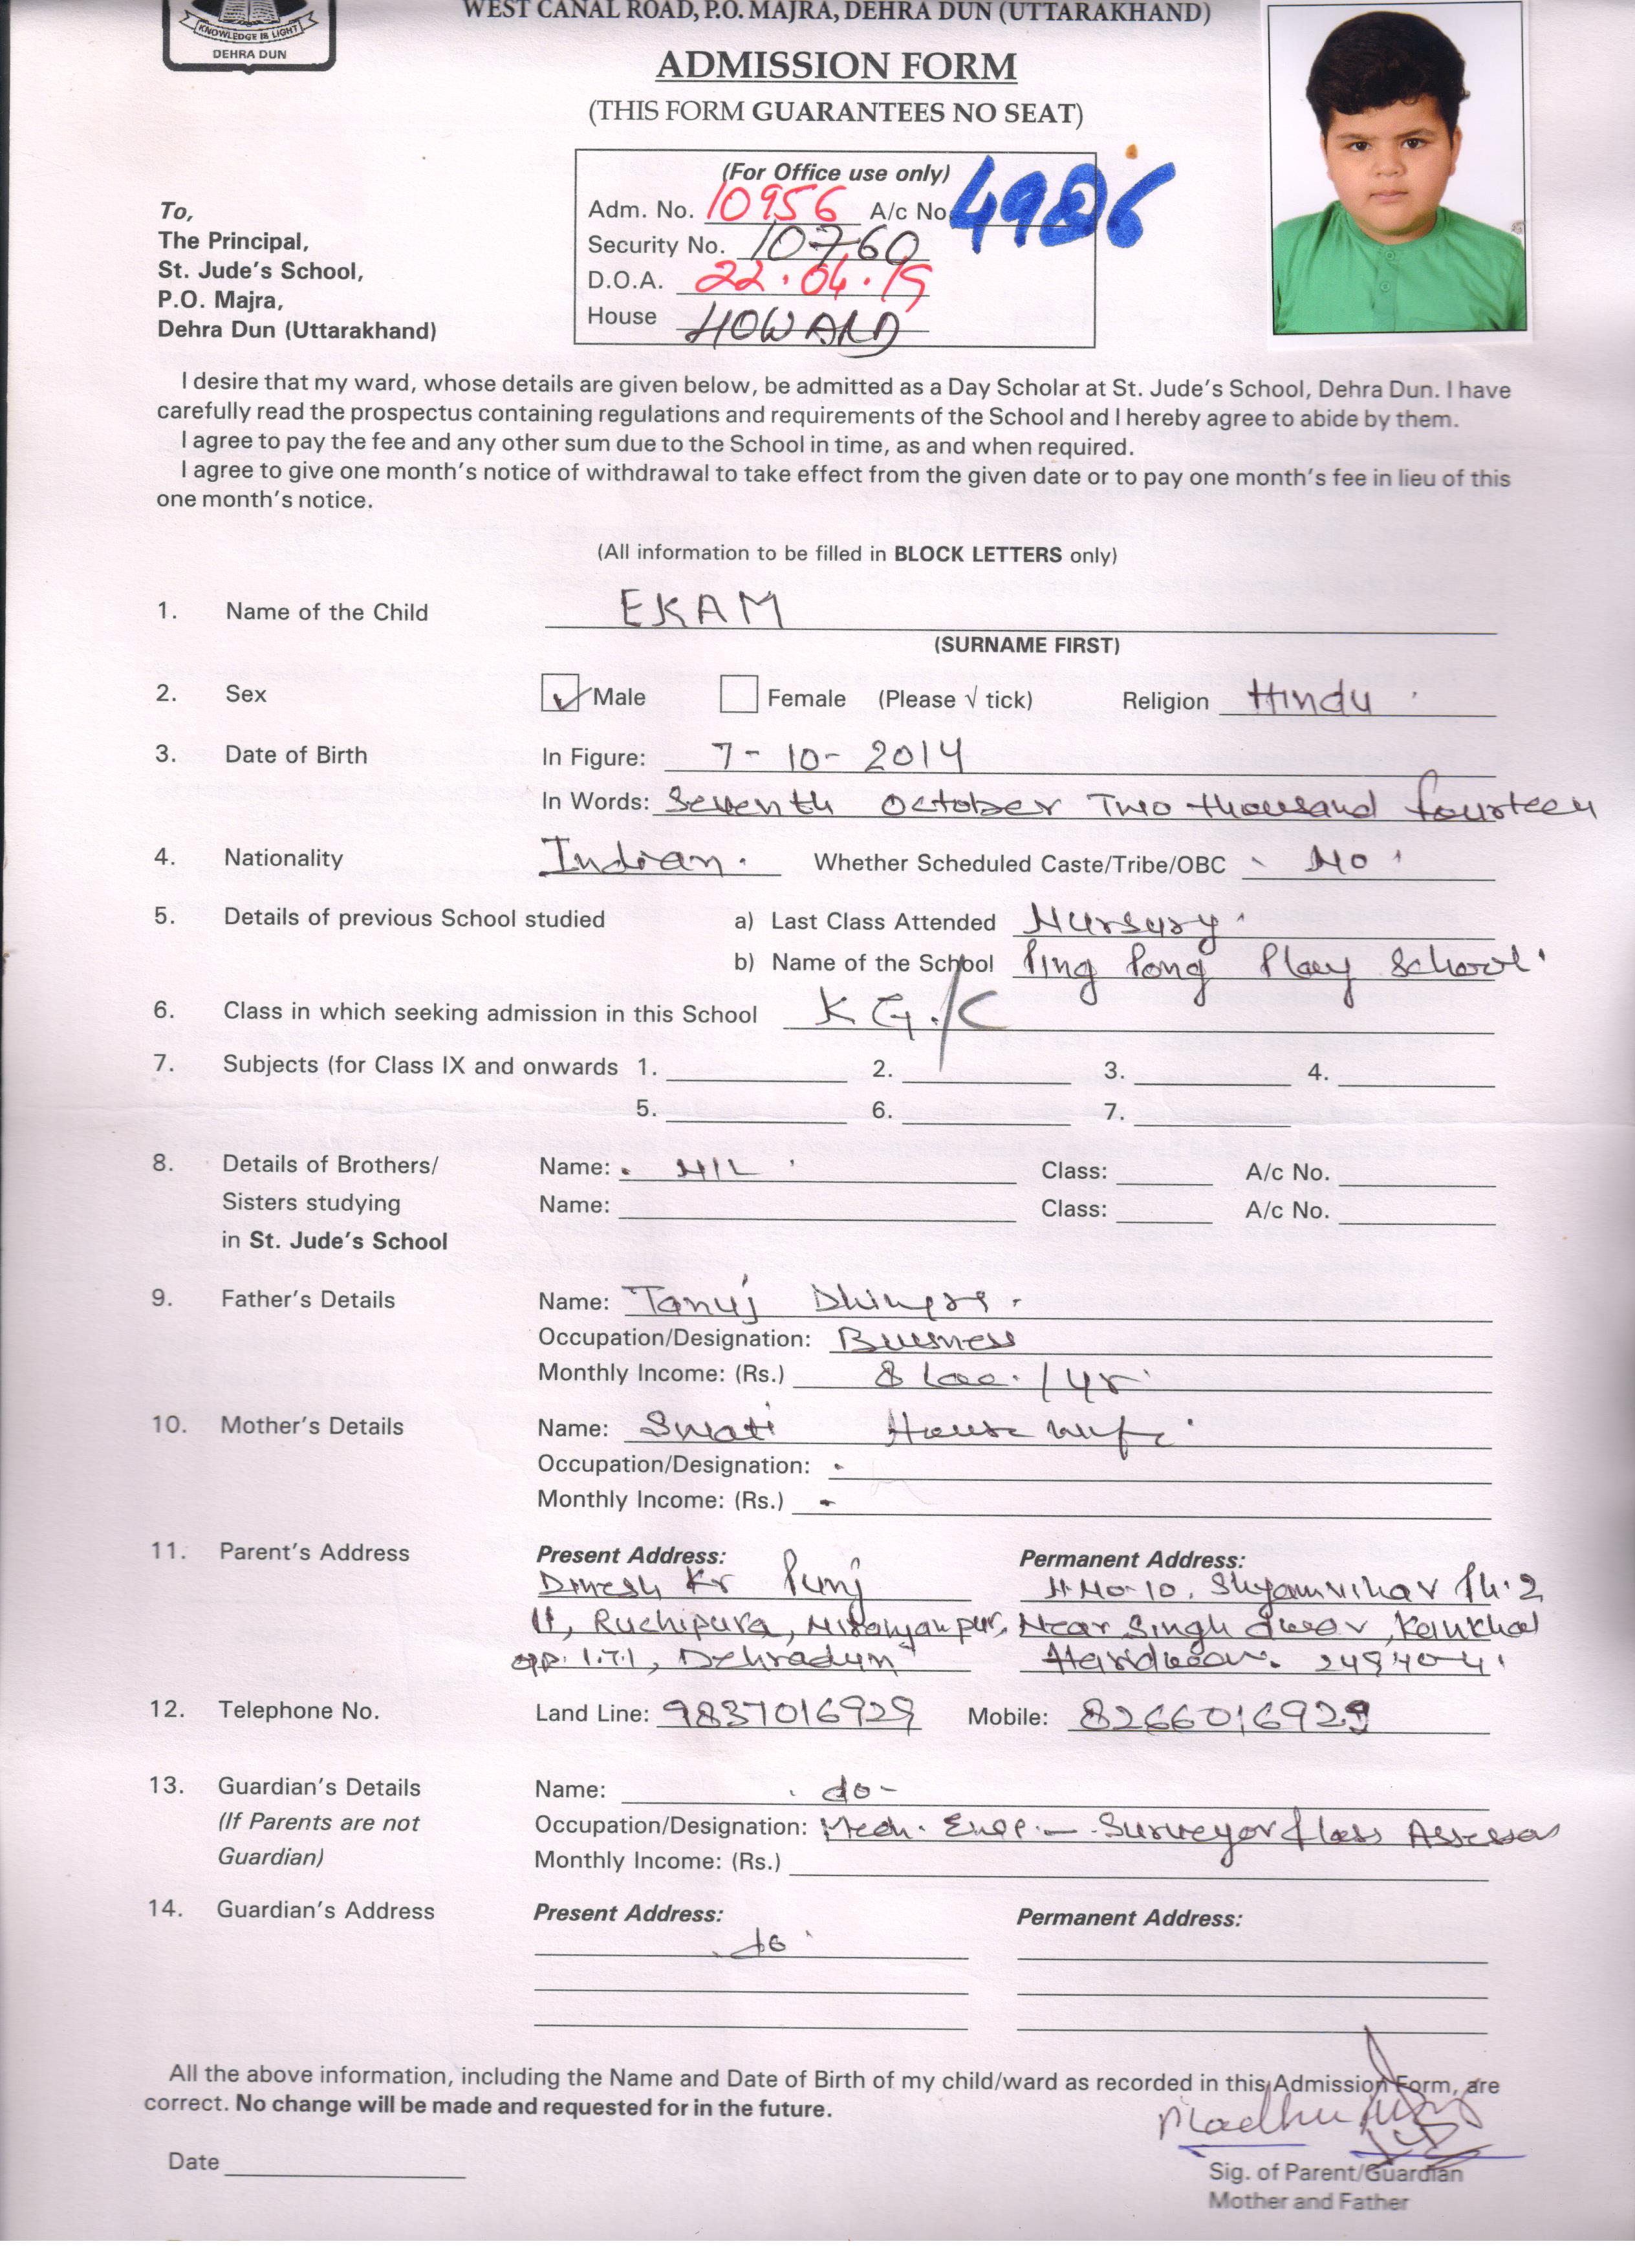 WEST CANAL ROAD, P.O. MAJRA, DEHRA DUN (UTTARAKHAND)
KNOWLEDGE IS LIGHT
DEHRA DUN
ADMISSION FORM
(THIS FORM GUARANTEES NO SEAT)
(For Office use only)
Adm. No. 10956 A/c No. 4986
Security No. 10760
D.O.A. 22.04.19
House HOWARD
To,
The Principal,
St. Jude's School,
P.O. Majra,
Dehra Dun (Uttarakhand)
I desire that my ward, whose details are given below, be admitted as a Day Scholar at St. Jude's School, Dehra Dun. I have
carefully read the prospectus containing regulations and requirements of the School and I hereby agree to abide by them.
I agree to pay the fee and any other sum due to the School in time, as and when required.
I agree to give one month's notice of withdrawal to take effect from the given date or to pay one month's fee in lieu of this
one month's notice.
(All information to be filled in BLOCK LETTERS only)
1. Name of the Child EKAM
(SURNAME FIRST)
2. Sex Male Female (Please √ tick) Religion Hindu
3. Date of Birth In Figure: 7-10-2014
In Words: Seventh October Two thousand fourteen
4. Nationality Indian. Whether Scheduled Caste/Tribe/OBC - No
5. Details of previous School studied a) Last Class Attended Nursury
b) Name of the School Ping Pong Play School.
6. Class in which seeking admission in this School KG./C
7. Subjects (for Class IX and onwards 1. 2. 3. 4.
5. 6. 7.
8. Details of Brothers/ Name: NIL Class: A/c No.
Sisters studying Name: Class: A/c No.
in St. Jude's School
9. Father's Details Name: Tanuj Dhingra.
Occupation/Designation: Business
Monthly Income: (Rs.) 8 Lac. / yr
10. Mother's Details Name: Swati House wife
Occupation/Designation: -
Monthly Income: (Rs.) -
11. Parent's Address Present Address: Permanent Address:
Dinesh Kr Punj H.No-10, Shyamvihar Ph.2
11, Ruchipura, Niranjanpur, Near Singh dwar, Kankhal
opp. I.T.I, Dehradun Haridwar. 249404
12. Telephone No. Land Line: 9837016929 Mobile: 8266016929
13. Guardian's Details Name: - do -
(If Parents are not Occupation/Designation: Mech. Engg. - Surveyor & Loss Assessor
Guardian) Monthly Income: (Rs.)
14. Guardian's Address Present Address: Permanent Address:
do
All the above information, including the Name and Date of Birth of my child/ward as recorded in this Admission Form, are
correct. No change will be made and requested for in the future.
Madhu
Date
Sig. of Parent/Guardian
Mother and Father